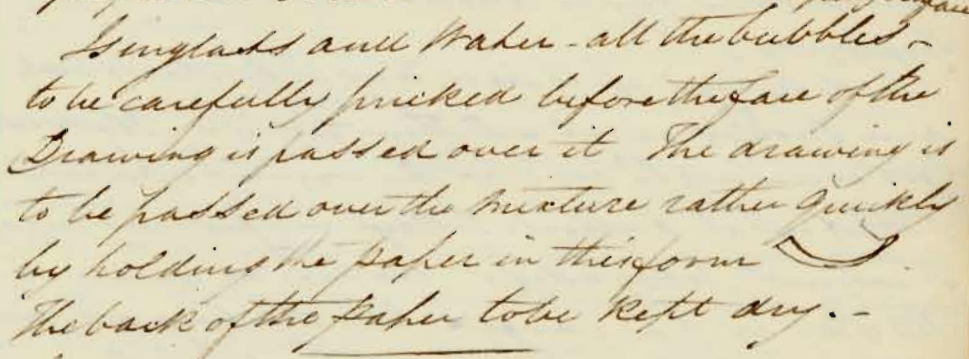 Isinglass and Water - all the bubbles -
to be carefully pricked before the face of the
Drawing is passed over it The drawing is
to be passed over the mixture rather quickly
by holding the paper in this form
The back of the paper to be kept dry. -